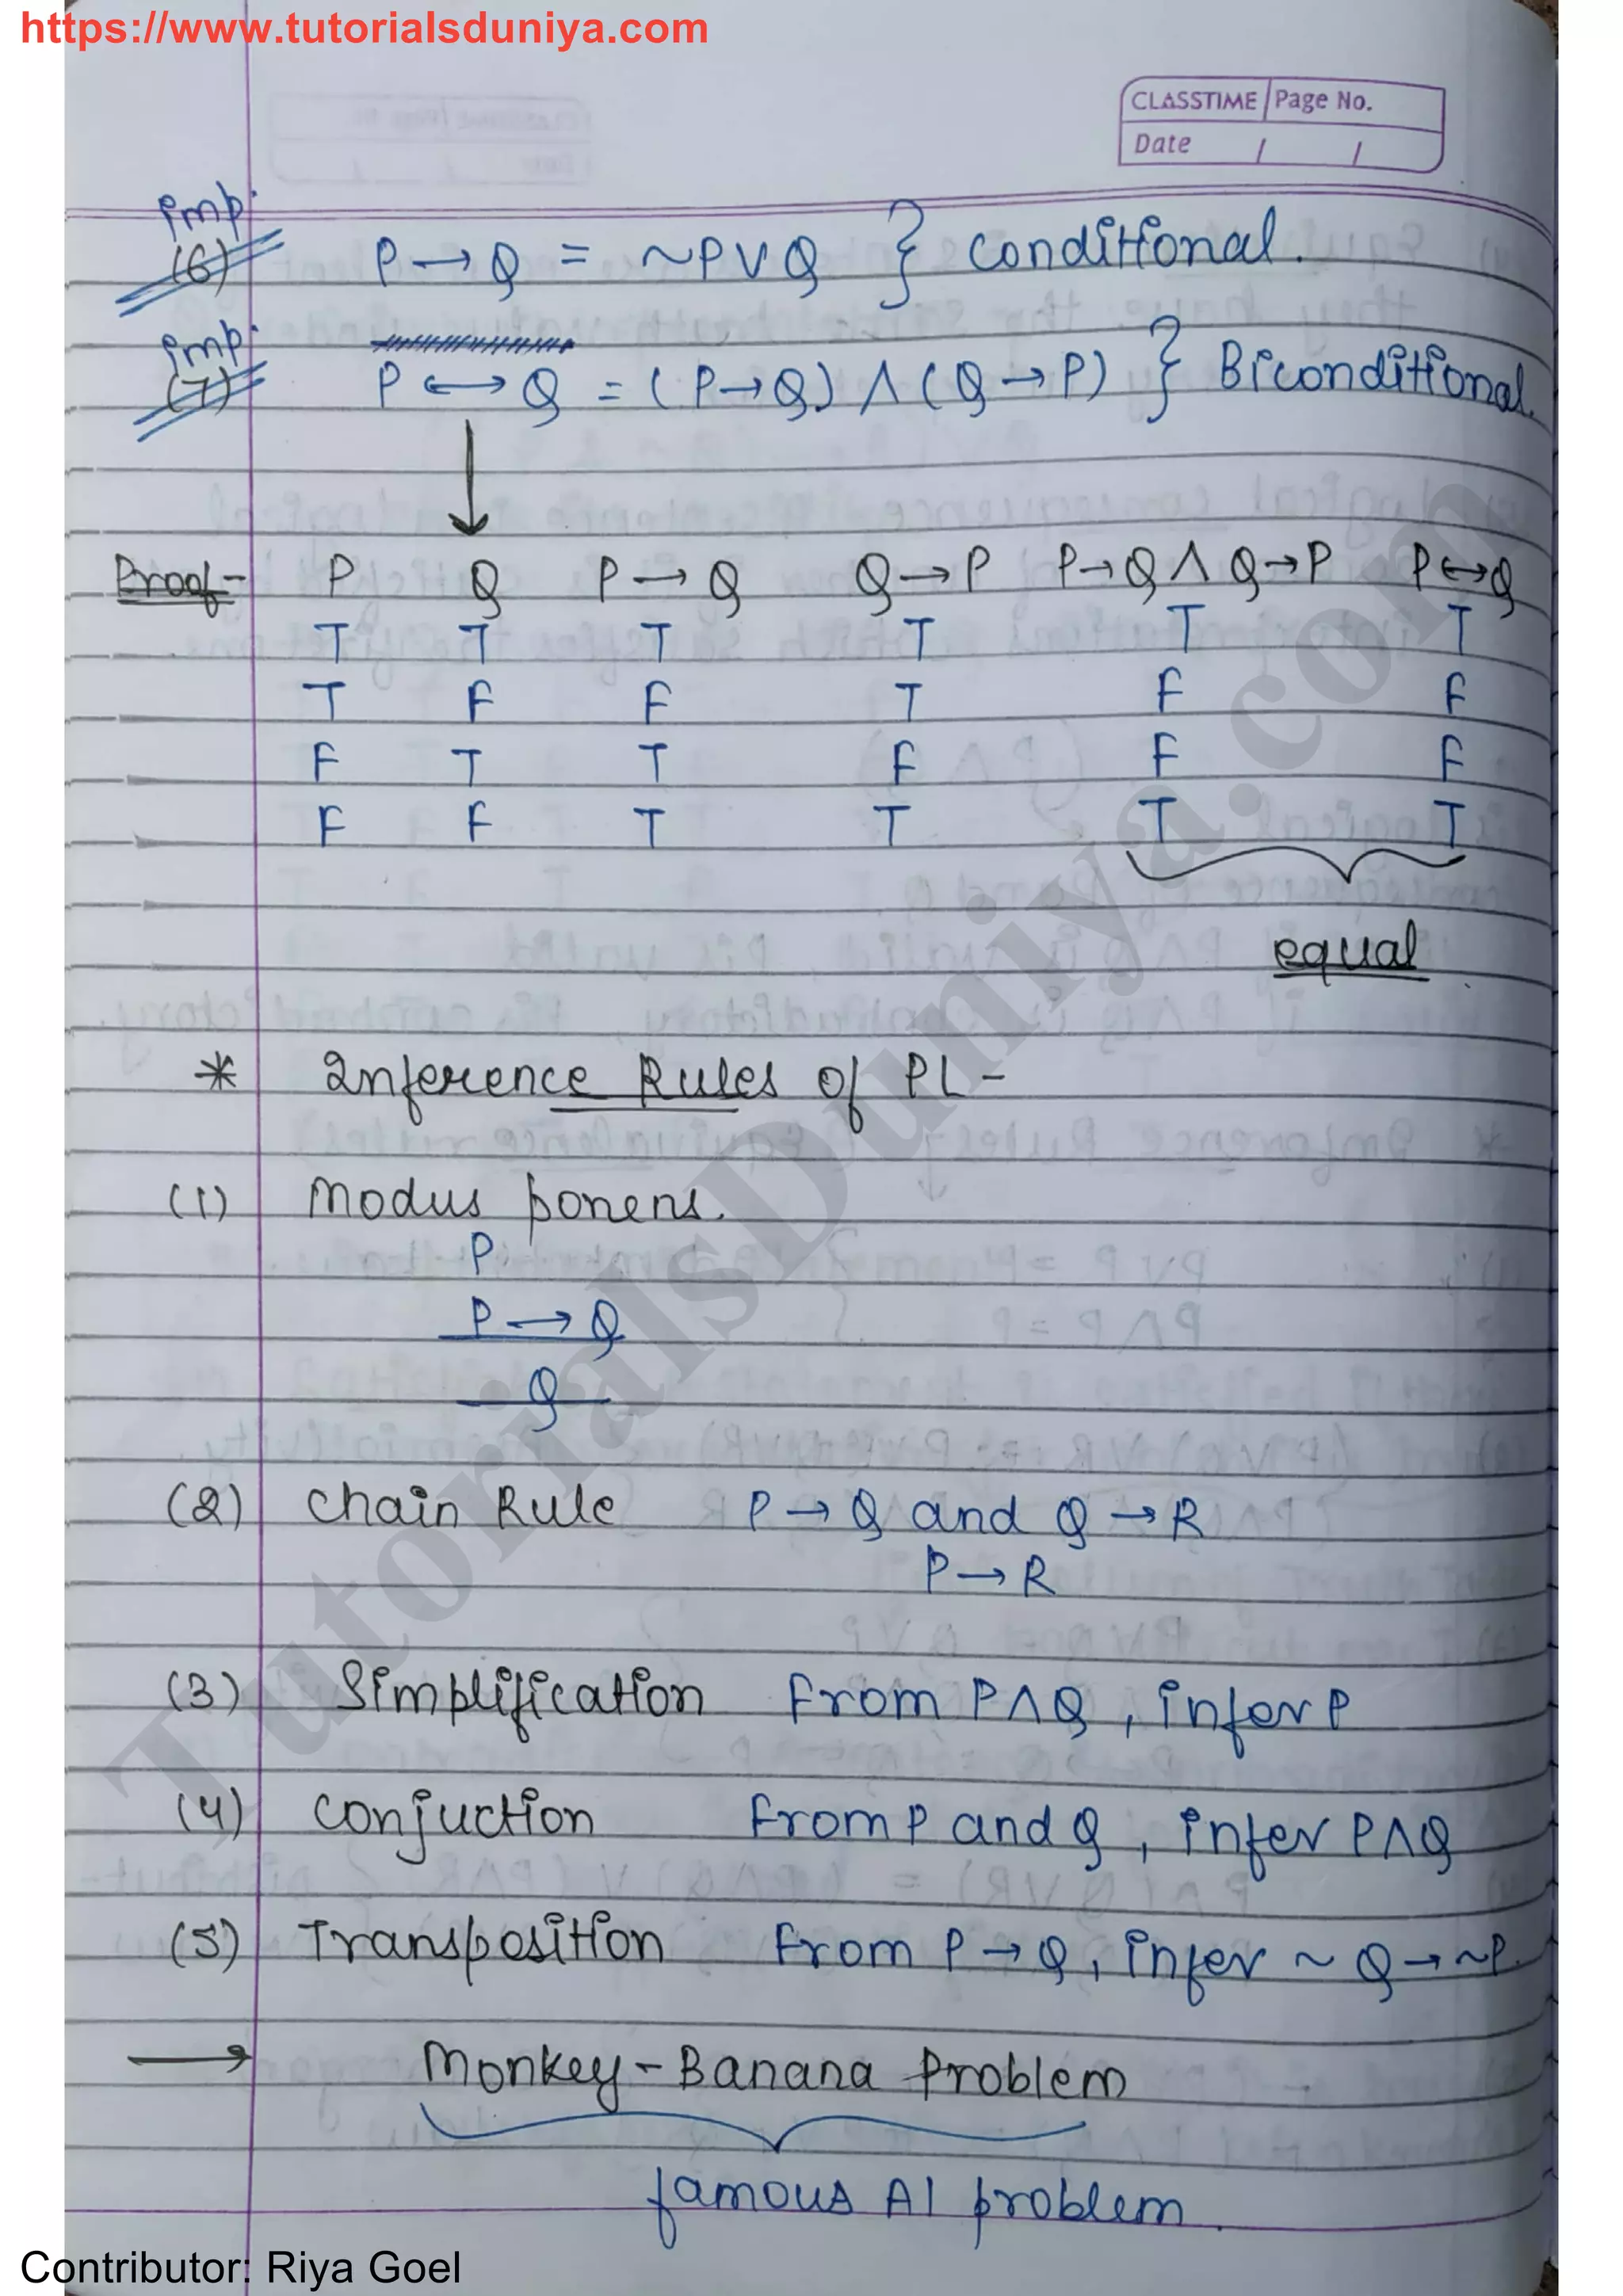 https://www.tutorialsduniya.com
CLASSTIME Page No.
Date / /
imp.
(6) P → Q = ~P V Q } Conditional.
imp.
(7) P ↔ Q = (P→Q) ∧ (Q→P) } Biconditional.
Proof- P Q P → Q Q → P P→Q ∧ Q→P P↔Q
T T T T T T
T F F T F F
F T T F F F
F F T T T T
equal
* Inference Rules of PL -
(1) Modus ponens.
P
P → Q
Q
(2) Chain Rule P → Q and Q → R
P → R
(3) Simplification From P∧Q , infer P
(4) Conjuction From P and Q , infer P∧Q
(5) Transposition From P → Q, infer ~Q → ~P.
→ Monkey-Banana Problem
famous AI problem.
TutorialsDuniya.com
Contributor: Riya Goel